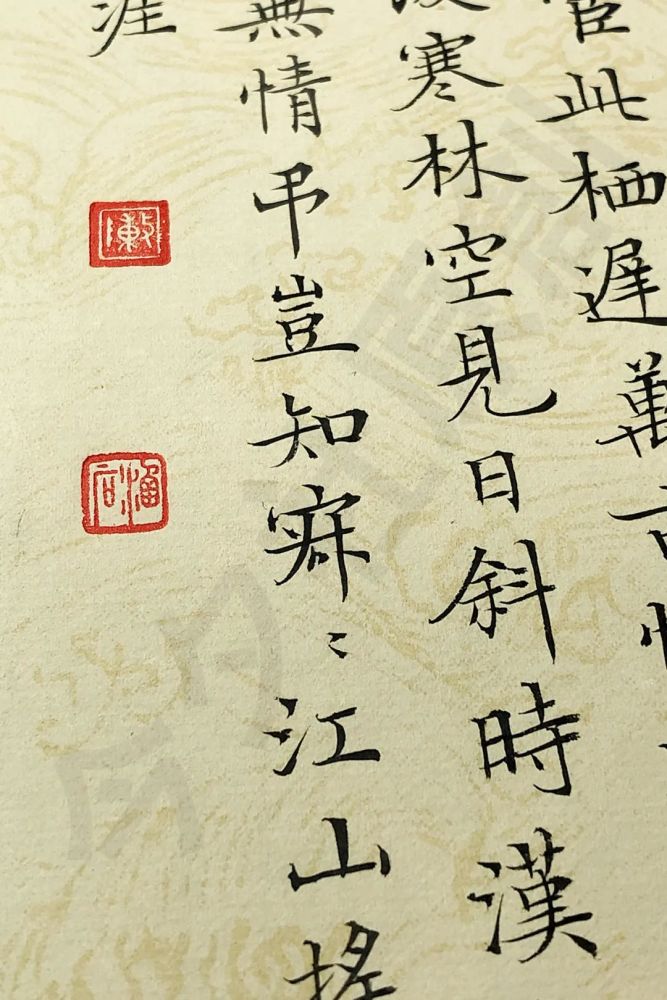 宦此栖遲萬古惟
後寒林空見日斜時漢
無情弔豈知寂〻江山搖
涯